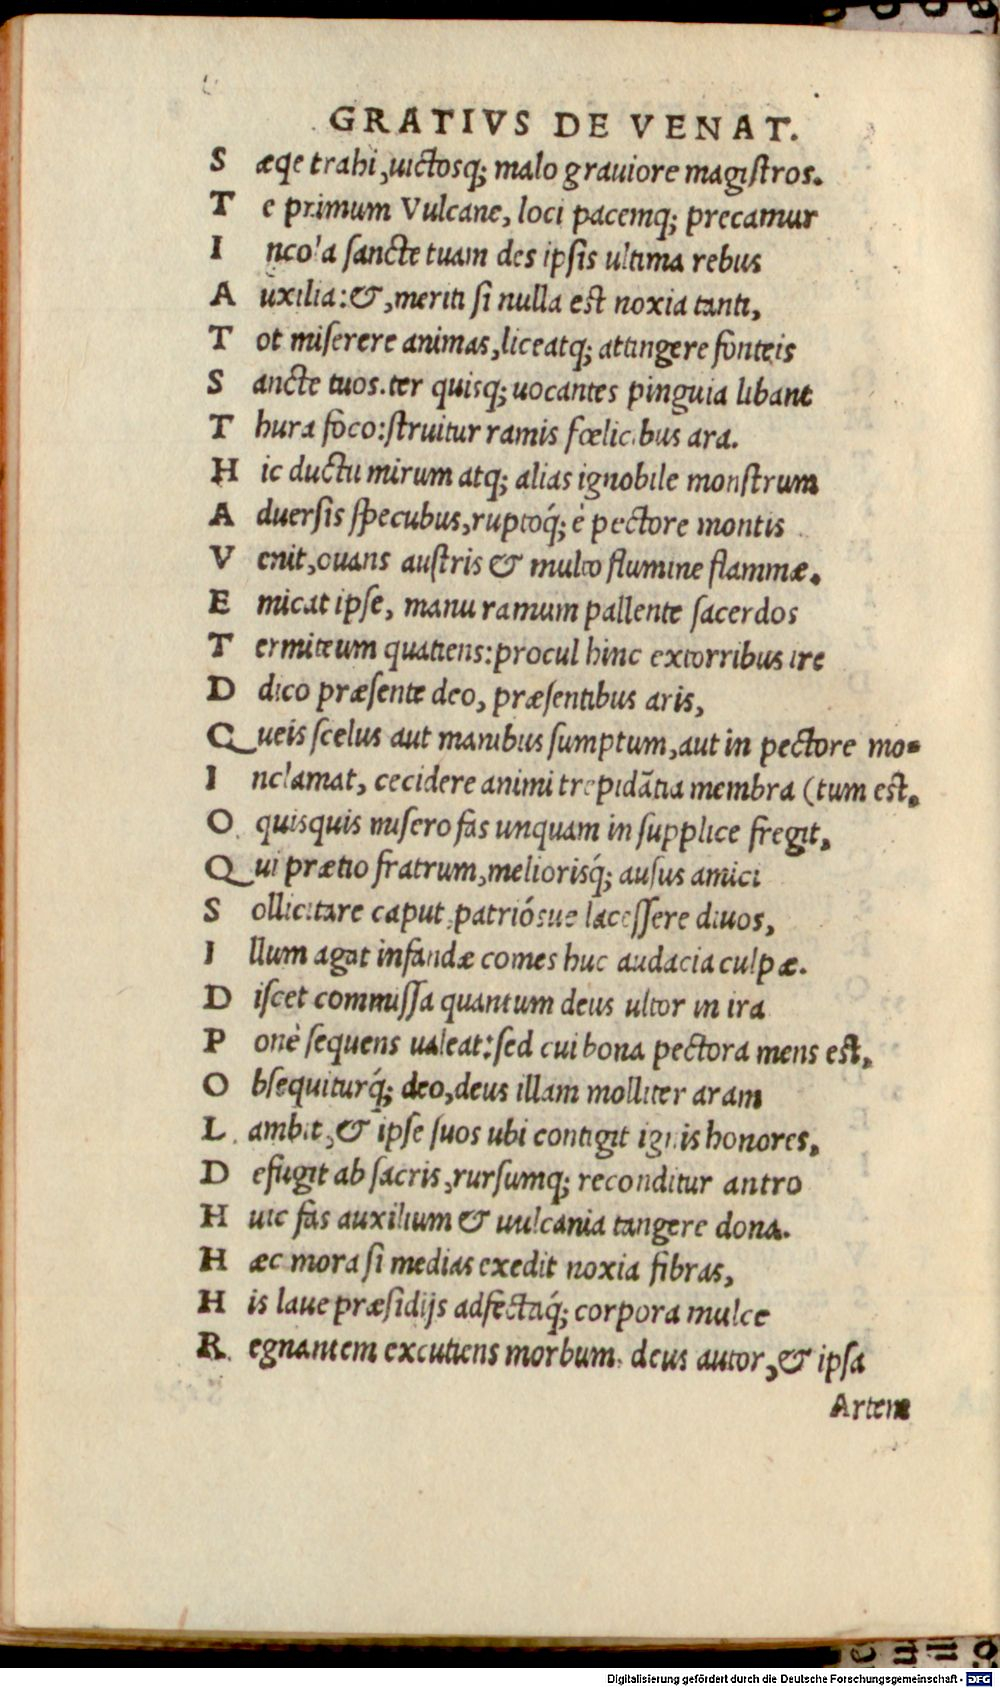 GRATIVS DE VENAT.
S æqe trahi, uictosq; malo grauiore magistros.
T e primum Vulcane, loci pacemq; precamur
I ncola sancte tuam des ipsis ultima rebus
A uxilia: &, meriti si nulla est noxia tanti,
T ot miserere animas, liceatq; attingere fonteis
S ancte tuos. ter quisq; uocantes pinguia libant
T hura foco: struitur ramis fœlicibus ara.
H ic ductu mirum atq; alias ignobile monstrum
A duersis specubus, ruptoq́; è pectore montis
V enit, ouans austris & multo flumine flammæ.
E micat ipse, manu ramum pallente sacerdos
T ermiteum quatiens: procul hinc extorribus ire
D dico præsente deo, præsentibus aris,
Q ueis scelus aut manibus sumptum, aut in pectore mo-
I nclamat, cecidere animi trepidãtia membra (tum est.
O quisquis misero fas unquam in supplice fregit,
Q ui prætio fratrum, meliorisq́; ausus amici
S ollicitare caput patriósue lacessere diuos,
I llum agat infandæ comes huc audacia culpæ.
D iscet commissa quantum deus ultor in ira
P onè sequens ualeat: sed cui bona pectora mens est,
O bsequiturq́; deo, deus illam molliter aram
L ambit, & ipse suos ubi contigit ignis honores,
D efugit ab sacris, rursumq; reconditur antro
H uic fas auxilium & uulcania tangere dona.
H æc mora si medias exedit noxia fibras,
H is laue præsidijs adfectaq́; corpora mulce
R egnantem excutiens morbum. deus autor, & ipsa
Artem
Digitalisierung gefördert durch die Deutsche Forschungsgemeinschaft - DFG